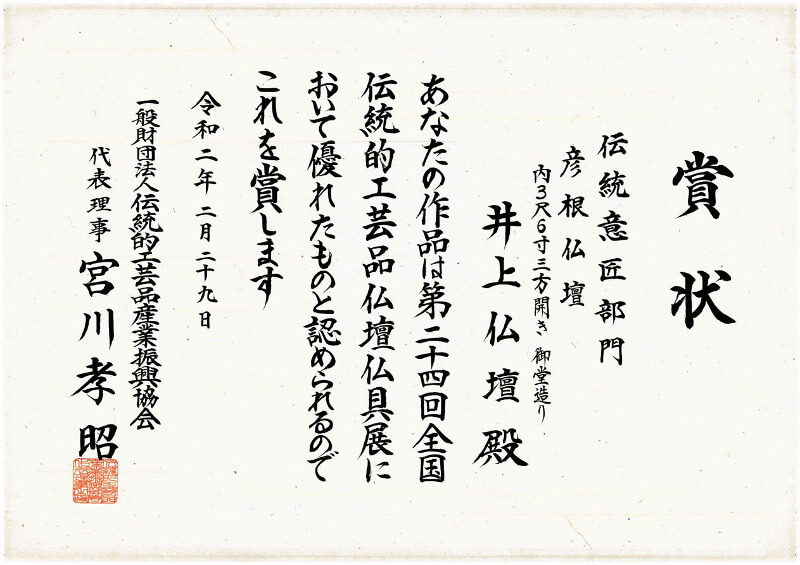 賞状
伝統意匠部門
彦根仏壇
内3尺6寸三方開き 御堂造り
井上仏壇殿
あなたの作品は第二十四回全国
伝統的工芸品仏壇仏具展に
おいて優れたものと認められるので
これを賞します
令和二年二月二十九日
一般財団法人伝統的工芸品産業振興協会
代表理事 宮川孝昭